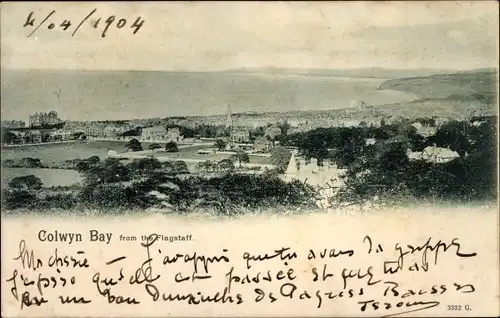 4/04/1904
Colwyn Bay from the Flagstaff
Ma chérie J'apprends que tu avais la grippe
J'espère qu'elle est passée et que tu
un bon Dimanche de Pâques Baisers
3332 G.